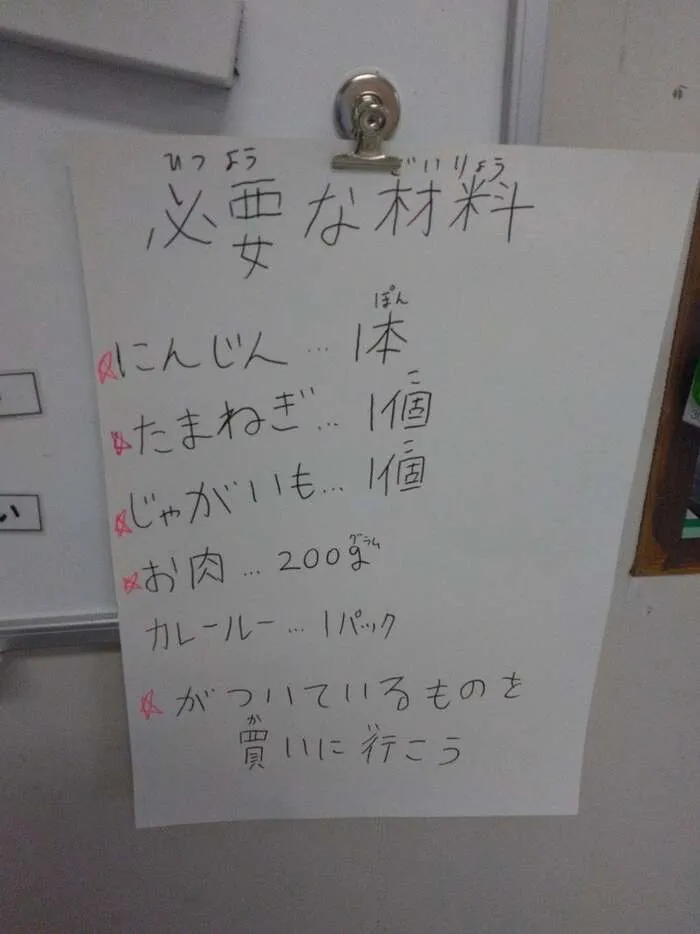 ひつ よう ざいりょう
必要な材料
☆にんじん…1本
ぽん
☆たまねぎ…1個
こ
☆じゃがいも…1個
こ
☆お肉…200g
グラム
カレールー…1パック
☆がついているものを
買いに行こう
か い
い